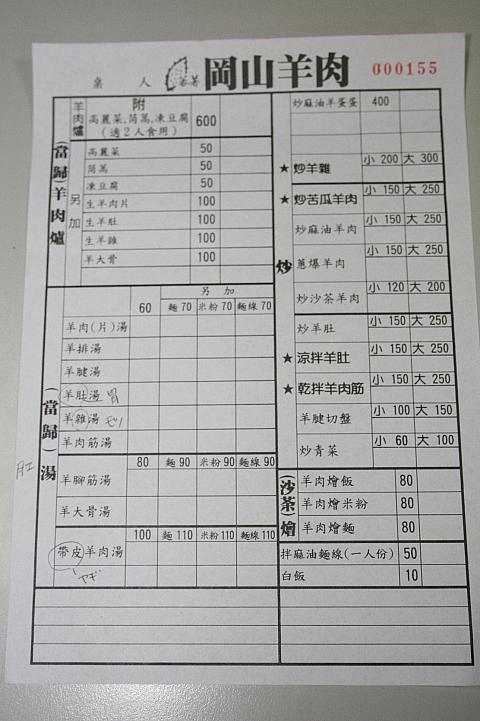 桌 人 岡山羊肉 000155
(當歸)羊肉爐
羊肉爐 附
高麗菜,茼萵,凍豆腐 600
(適2人食用)
另加
高麗菜 50
茼萵 50
凍豆腐 50
生羊肉片 100
生羊肚 100
生羊雜 100
羊大骨 100
(當歸)湯
另加
60 麵70 米粉70 麵線70
羊肉(片)湯
羊排湯
羊腱湯
羊肚湯 胃
羊雜湯 モツ
羊肉筋湯
80 麵90 米粉90 麵線90
羊腳筋湯
羊大骨湯
100 麵110 米粉110 麵線110
帶皮羊肉湯
炒
炒麻油羊蛋蛋 400
★炒羊雜 小 200 大 300
★炒苦瓜羊肉 小 150 大 250
炒麻油羊肉 小 150 大 250
蔥爆羊肉 小 150 大 250
炒沙茶羊肉 小 120 大 200
炒羊肚 小 150 大 250
★涼拌羊肚 小 150 大 250
★乾拌羊肉筋 小 150 大 250
羊腱切盤 小 100 大 150
炒青菜 小 60 大 100
(沙茶)燴
羊肉燴飯 80
羊肉燴米粉 80
羊肉燴麵 80
拌麻油麵線(一人份) 50
白飯 10